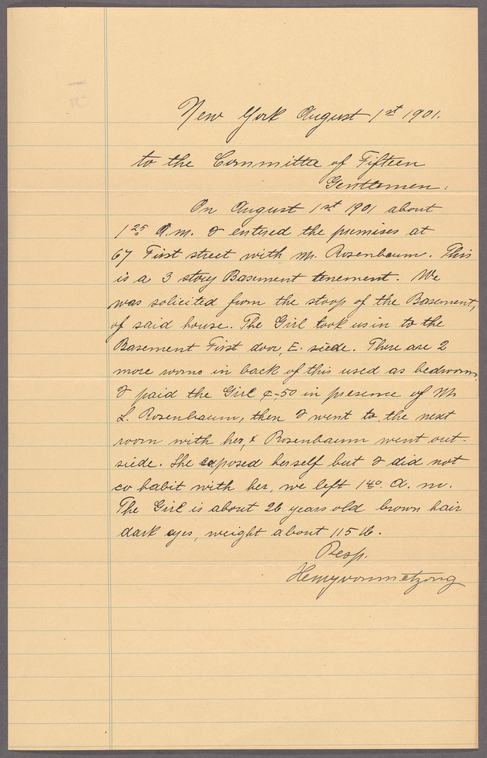 New York August 1st 1901.
to the Committe of Fifteen
Gentlemen.
On August 1st 1901 about
1 25 A.m. I entered the premises at
67 First street with Mr. Rosenbaum. This
is a 3 story Basement tenement. We
was solicited from the stoop of the Basement,
of said house. The Girl took us in to the
Basement First door, E. siede. There are 2
more rooms in back of this used as bedrooms.
I paid the Girl ¢-50 in presence of Mr
L. Rosenbaum, then I went to the next
room with her, & Rosenbaum went out-
siede. She exposed herself but I did not
co habit with her, we left 1 40 A. m.
The Girl is about 26 years old brown hair
dark eyes, weight about 115 lb.
Resp.